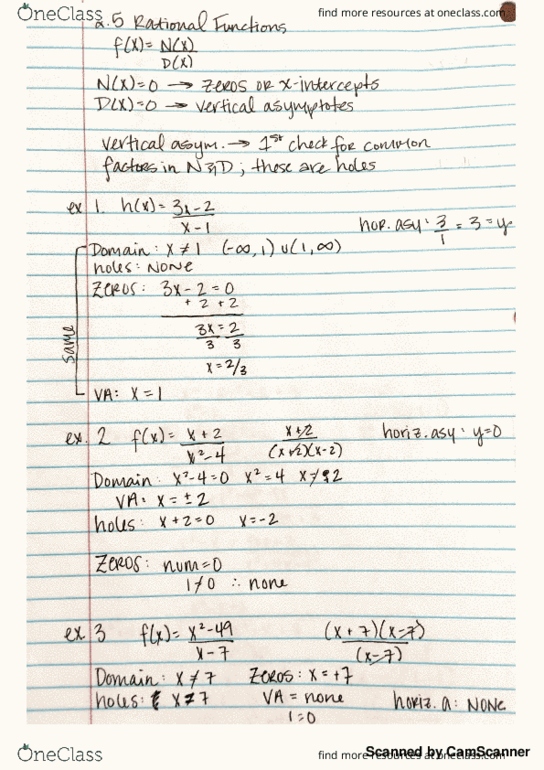 OneClass find more resources at oneclass.com
2.5 Rational Functions
f(x) = N(x)
D(x)
N(x)=0 → zeros or x-intercepts
D(x)=0 → vertical asymptotes
vertical asym. → 1st check for common
factors in N & D ; those are holes
ex 1. h(x) = 3x-2
x-1
hor. asy : 3/1 = 3 = y
Domain : x ≠ 1 (-∞, 1) ∪ (1, ∞)
holes : NONE
zeros : 3x - 2 = 0
+2 +2
3x = 2
3 3
x = 2/3
same
VA: x = 1
ex. 2 f(x) = x+2 x+2 horiz. asy : y=0
x²-4 (x+2)(x-2)
Domain : x²-4=0 x²=4 x≠±2
VA: x = ±2
holes : x+2=0 x=-2
zeros : num=0
1≠0 ∴ none
ex 3 f(x) = x²-49 (x+7)(x-7)
x-7 (x-7)
Domain : x ≠ 7 zeros : x = +7
holes : x ≠ 7 VA = none horiz. a : NONE
1=0
OneClass find more resources at oneclass.com
Scanned by CamScanner